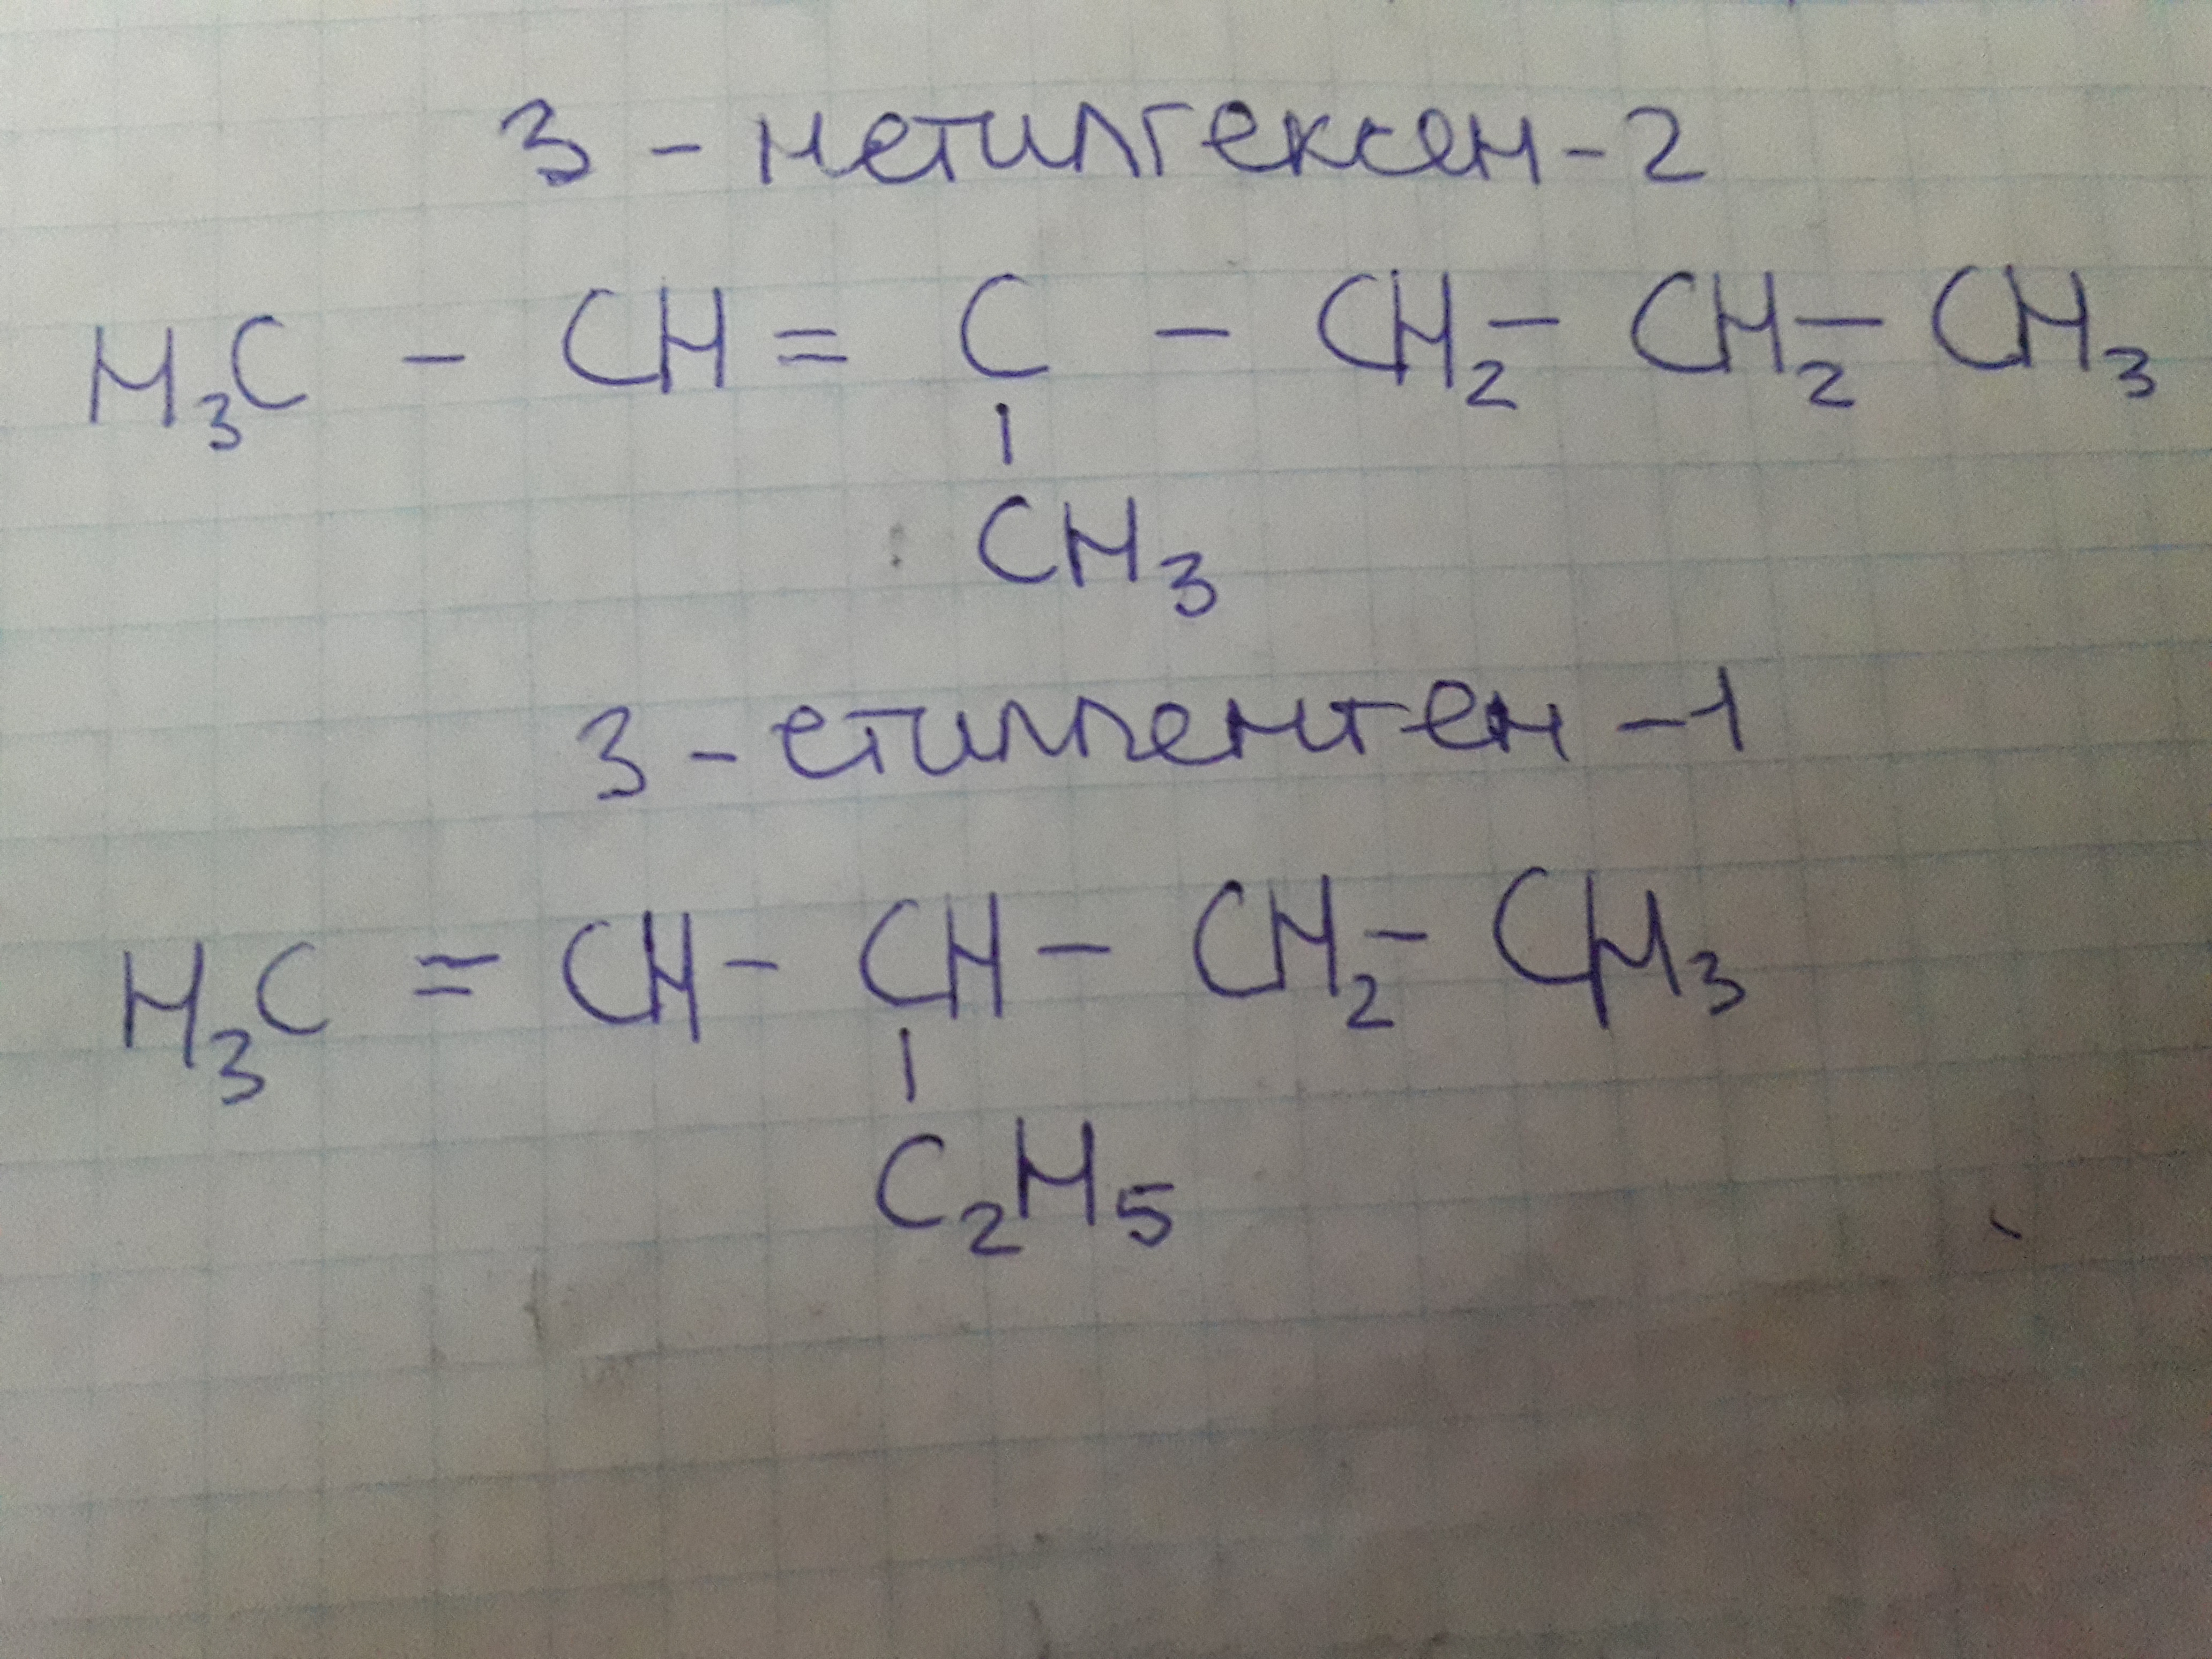 3 - метилгексен - 2
H₃C - CH = C - CH₂ - CH₂ - CH₃
CH₃
3 - етилпентен - 1
H₃C = CH - CH - CH₂ - CH₃
C₂H₅